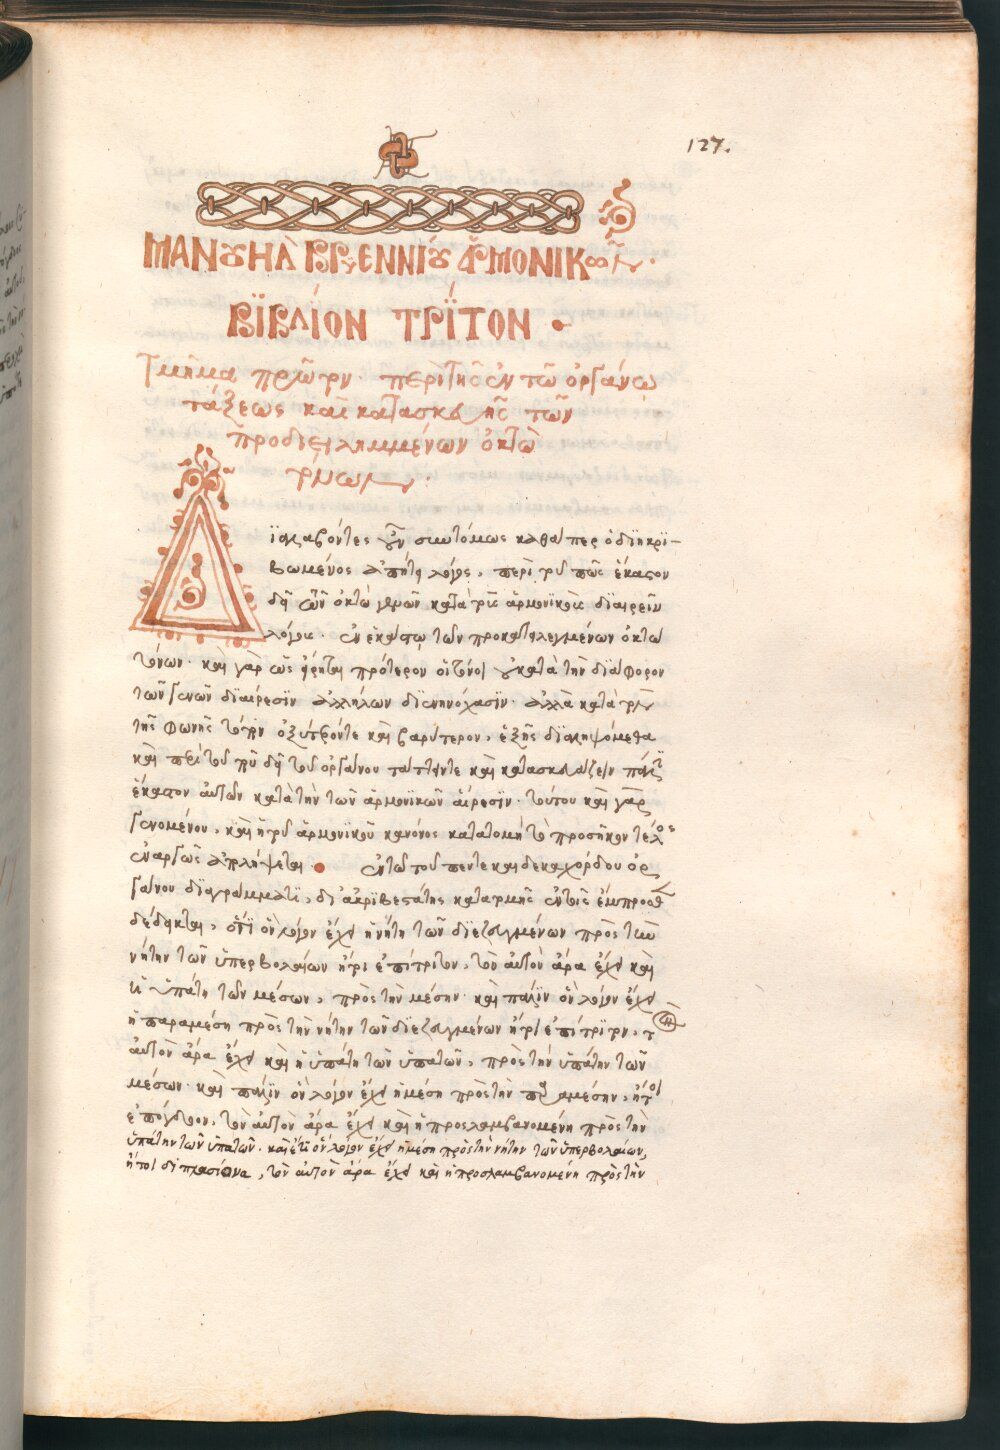 127.
ΜΑΝȣΗΛ ΒΡΥΕΝΝΙȣ ἉΡΜΟΝΙΚῶν.
ΒΙΒΛΊΟΝ ΤΡΊΤΟΝ
Τμῆμα πρῶτον· περὶ τῆς ἐν τῶ ὀργάνω
τάξεως καὶ κατασκευῆς τῶν
προδιειλημμένων ὀκτὼ
τόνων.
Διαλαβόντες οὖν συντόμως καθάπερ ὁ διηκρι-
βωμένος ἀπήτει λόγος, περὶ τοῦ πῶς ἕκαστον
δεῖ τῶν ὀκτὼ γενῶν κατὰ τοὺς ἁρμονικοὺς διαιρεῖν
λόγους· ἐν ἑκάστω τῶν προκατειλεγμένων ὀκτὼ
τόνων· καὶ γὰρ ὡς εἴρηται πρότερον οἱ τόνοι οὐ κατὰ τὴν διάφορον
τῶν γενῶν διαίρεσιν ἀλλήλων διενηνόχασιν· ἀλλὰ κατὰ τὸν
τῆς φωνῆς τόπον ὀξύτερόν τε καὶ βαρύτερον, ἑξῆς διαληψόμεθα
καὶ περὶ τοῦ ποῦ δεῖ τοῦ ὀργάνου τάττειν τε καὶ κατασκευάζειν
ἕκαστον αὐτῶν κατὰ τὴν τῶν ἁρμονικῶν αἵρεσιν· τούτου καὶ γὰρ
γενομένου, καὶ ἡ τοῦ ἁρμονικοῦ κανόνος κατατομὴ τὸ προσῆκον τέλος
ἐναργῶς ἀπολήψεται· ἐν τῶ τοῦ πεντεκαιδεκαχόρδου ὀρ
γάνου διαγράμματι, δι' ἀκριβεστάτης κατατομῆς ἐν τοῖς ἔμπροσθ
δέδεικται, ὅτι ὃν λόγον ἔχει ἡ νήτη τῶν διεζευγμένων πρὸς τὴν
νήτην τῶν ὑπερβολαίων ἤτοι ἐπίτριτον, τὸν αὐτὸν ἄρα ἔχει καὶ
ἡ ὑπάτη τῶν μέσων, πρὸς τὴν μέσην· καὶ πάλιν ὃν λόγον ἔχει
ἡ παραμέση πρὸς τὴν νήτην τῶν διεζευγμένων ἤτοι ἐπίτριτον, τ
αὐτὸν ἄρα ἔχει καὶ ἡ ὑπάτη τῶν ὑπατῶν, πρὸς τὴν ὑπάτην τῶν
μέσων· καὶ πάλιν ὃν λόγον ἔχει ἡ μέση πρὸς τὴν παραμέσην, ἤτοι
ἐπόγδοον, τὸν αὐτὸν ἄρα ἔχει καὶ ἡ προσλαμβανομένη πρὸς τὴν
ὑπάτην τῶν ὑπατῶν. καὶ ἔτι ὃν λόγον ἔχει ἡ μέση πρὸς τὴν νήτην τῶν ὑπερβολαίων,
ἤτοι διπλασίονα, τὸν αὐτὸν ἄρα ἔχει καὶ ἡ προσλαμβανομένη πρὸς τὴν